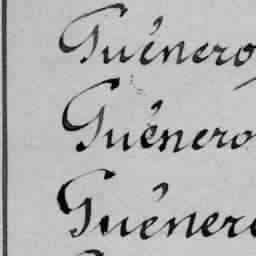 Guénero
Guénero
Guénero